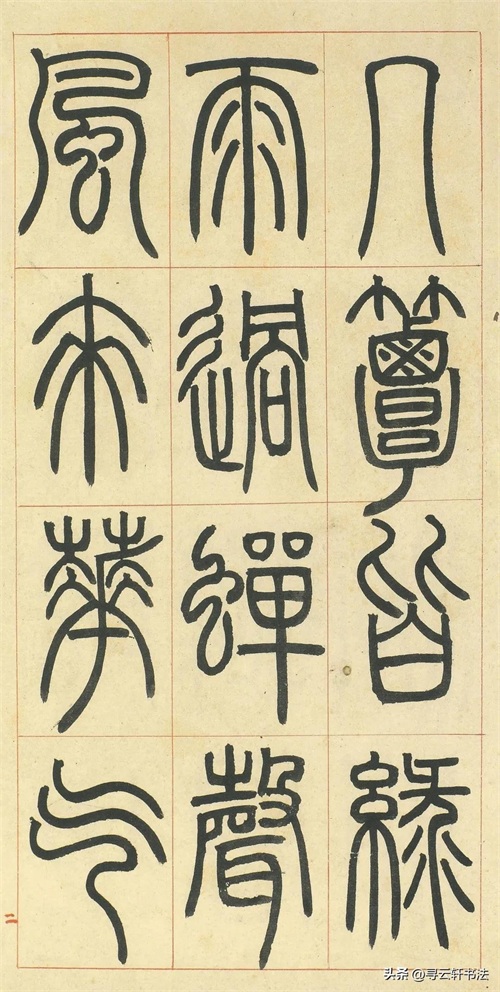 几簟皆綠
雨過蟬聲
風來華气
二
头条 @寻云轩书法